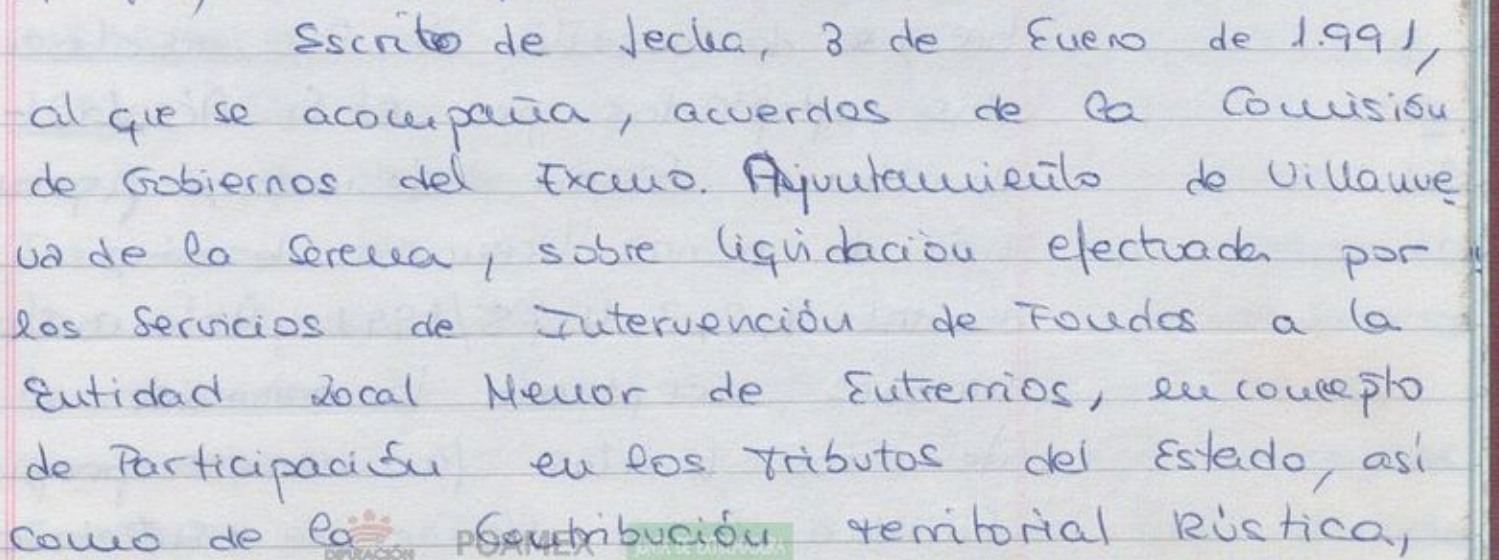 Escrito de fecha, 3 de Enero de 1.991,
al que se acompaña, acuerdos de la Comisión
de Gobiernos del Excmo. Ayuntamiento de Villanue
va de la Serena, sobre liquidación efectuada por
los Servicios de Intervención de Fondos a la
Entidad Local Menor de Entrerrios, en concepto
de Participación en los Tributos del Estado, así
como de la Contribución territorial Rústica,
DIPUTACIÓN POAMEX JUNTA DE EXTREMADURA